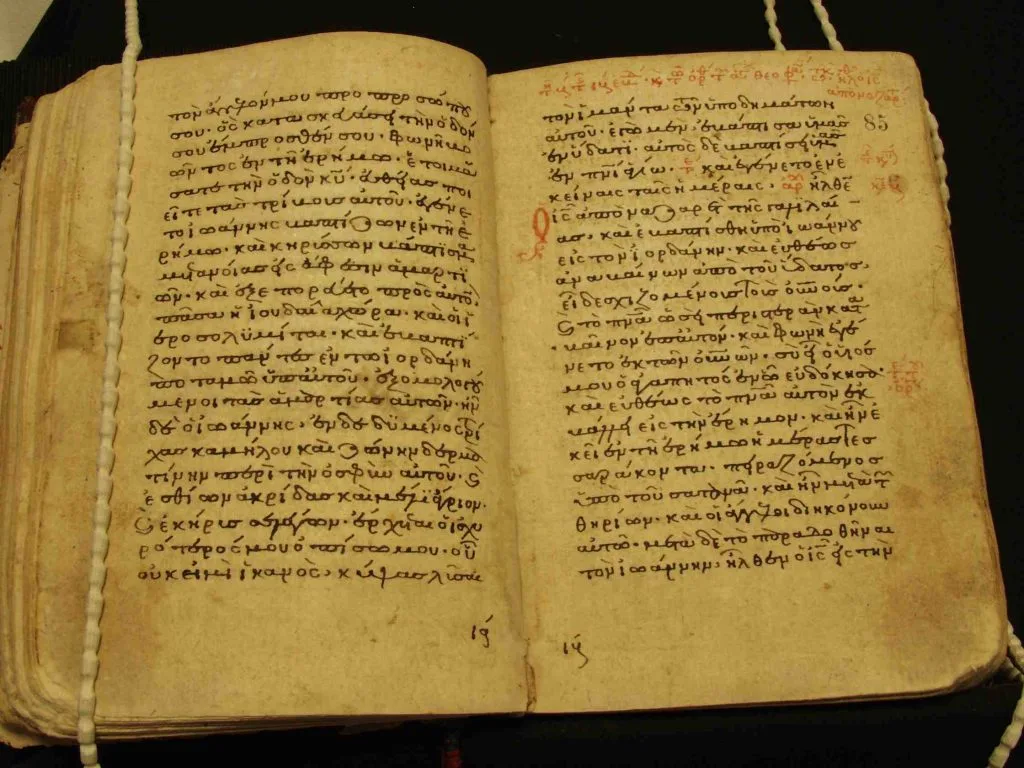 τὸν ἄγγελόν μου πρὸ προσώπου
σου· ὃς κατασκευάσει τὴν ὁδόν
σου ἔμπροσθέν σου· φωνὴ βο
ῶντος ἐν τῆ ἐρήμω· ἑτοιμά
σατε τὴν ὁδὸν κυ· εὐθείας ποι
εῖτε τὰς τρίβους αὐτοῦ· ἐγένε
το ἰωάννης βαπτίζων ἐν τῆ ἐ
ρήμω· καὶ κηρύσσων βάπτισμα
μετανοίας εἰς ἄφεσιν ἁμαρτι
ῶν· καὶ ἐξεπορεύετο πρὸς αὐτὸν
πᾶσα ἡ ἰουδαία χώρα· καὶ οἱ ἱ
εροσολυμῖται· καὶ ἐβαπτί
ζοντο πάντες ἐν τῶ ἰορδάνη
ποταμῶ ὑπ αὐτοῦ· ἐξομολογού
μενοι τὰς ἁμαρτίας αὐτῶν· ἦν
δὲ ὁ ἰωάννης· ἐνδεδυμένος τρί
χας καμήλου καὶ ζώνην δερμα
τίνην περὶ τὴν ὀσφὺν αὐτοῦ· ϗ
ἐσθίων ἀκρίδας καὶ μέλι ἄγριον·
ϗ ἐκήρυσσεν λέγων· ἔρχεται ὁ ἰσχυ
ρότερός μου ὀπίσω μου· οὗ
οὐκ εἰμὶ ἱκανὸς· κύψας λῦσαι
τὸν ἱμάντα τῶν ὑποδημάτων
αὐτοῦ· ἐγὼ μὲν ἐβάπτισα ὑμᾶς
ἐν ὕδατι· αὐτὸς δὲ βαπτίσει ὑμᾶς
ἐν πνι ἁγίω· καὶ ἐγένετο ἐν ἐ
κείναις ταῖς ἡμέραις· ἦλθεν
ὁ ις ἀπὸ ναζαρὲτ τῆς γαλιλαί
ας· καὶ ἐβαπτίσθη ὑπὸ ἰωάννου
εἰς τὸν ἰορδάνην· καὶ εὐθέως
ἀναβαίνων ἀπὸ τοῦ ὕδατος,
εἶδε σχιζομένους τοὺς ουνους·
ϗ τὸ πνα ὡσεὶ περιστερὰν κατα
βαῖνον ἐπ αὐτόν· καὶ φωνὴ ἐγέ
νετο ἐκ τῶν ουνων· σὺ εἶ ὁ υἱός
μου ὁ ἀγαπητός ἐν ᾧ εὐδόκησα·
καὶ εὐθέως τὸ πνα αὐτὸν ἐκ
βάλλει εἰς τὴν ἔρημον· καὶ ἦν ἐ
κεῖ ἐν τῆ ἐρήμω ἡμέρας τεσ
σαράκοντα· πειραζόμενος
ὑπὸ τοῦ σατανᾶ· καὶ ἦν μετὰ τῶν
θηρίων· καὶ οἱ ἄγγελοι διηκόνουν
αὐτῶ· μετὰ δὲ τὸ παραδοθῆναι
τὸν ἰωάννην, ἦλθεν ὁ ις εἰς τὴν
85